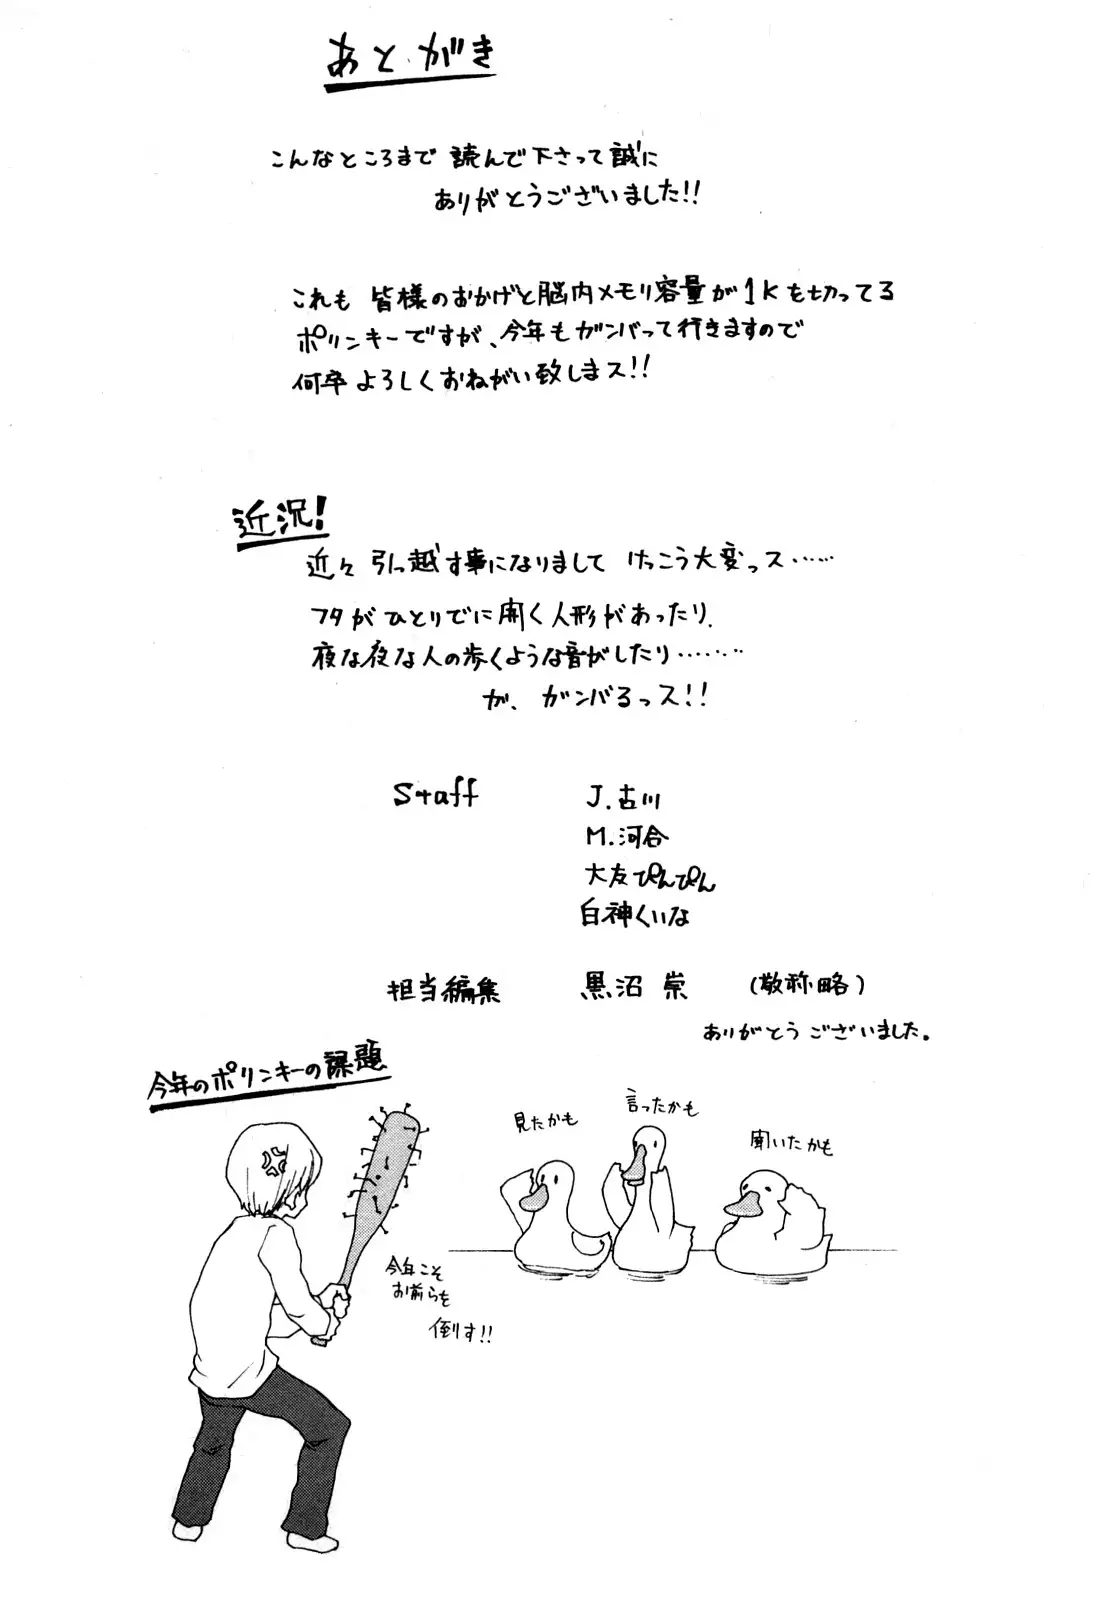 あとがき
こんなところまで 読んで下さって誠に
ありがとうございました!!
これも 皆様のおかげと脳内メモリ容量が1Kを切ってる
ポリンキーですが、今年もガンバって行きますので
何卒よろしくおねがい致しまス!!
近況!
近々引っ越す事になりまして けっこう大変っス……
フタがひとりでに開く人形があったり、
夜な夜な人の歩くような音がしたり………
が、ガンバるっス!!
Staff
J.古川
M.河合
大友ぴんぴん
白神くいな
担当編集 黒沼 崇 (敬称略)
ありがとうございました。
今年のポリンキーの課題
見たかも
言ったかも
聞いたかも
今年こそ
お前らを
倒す!!